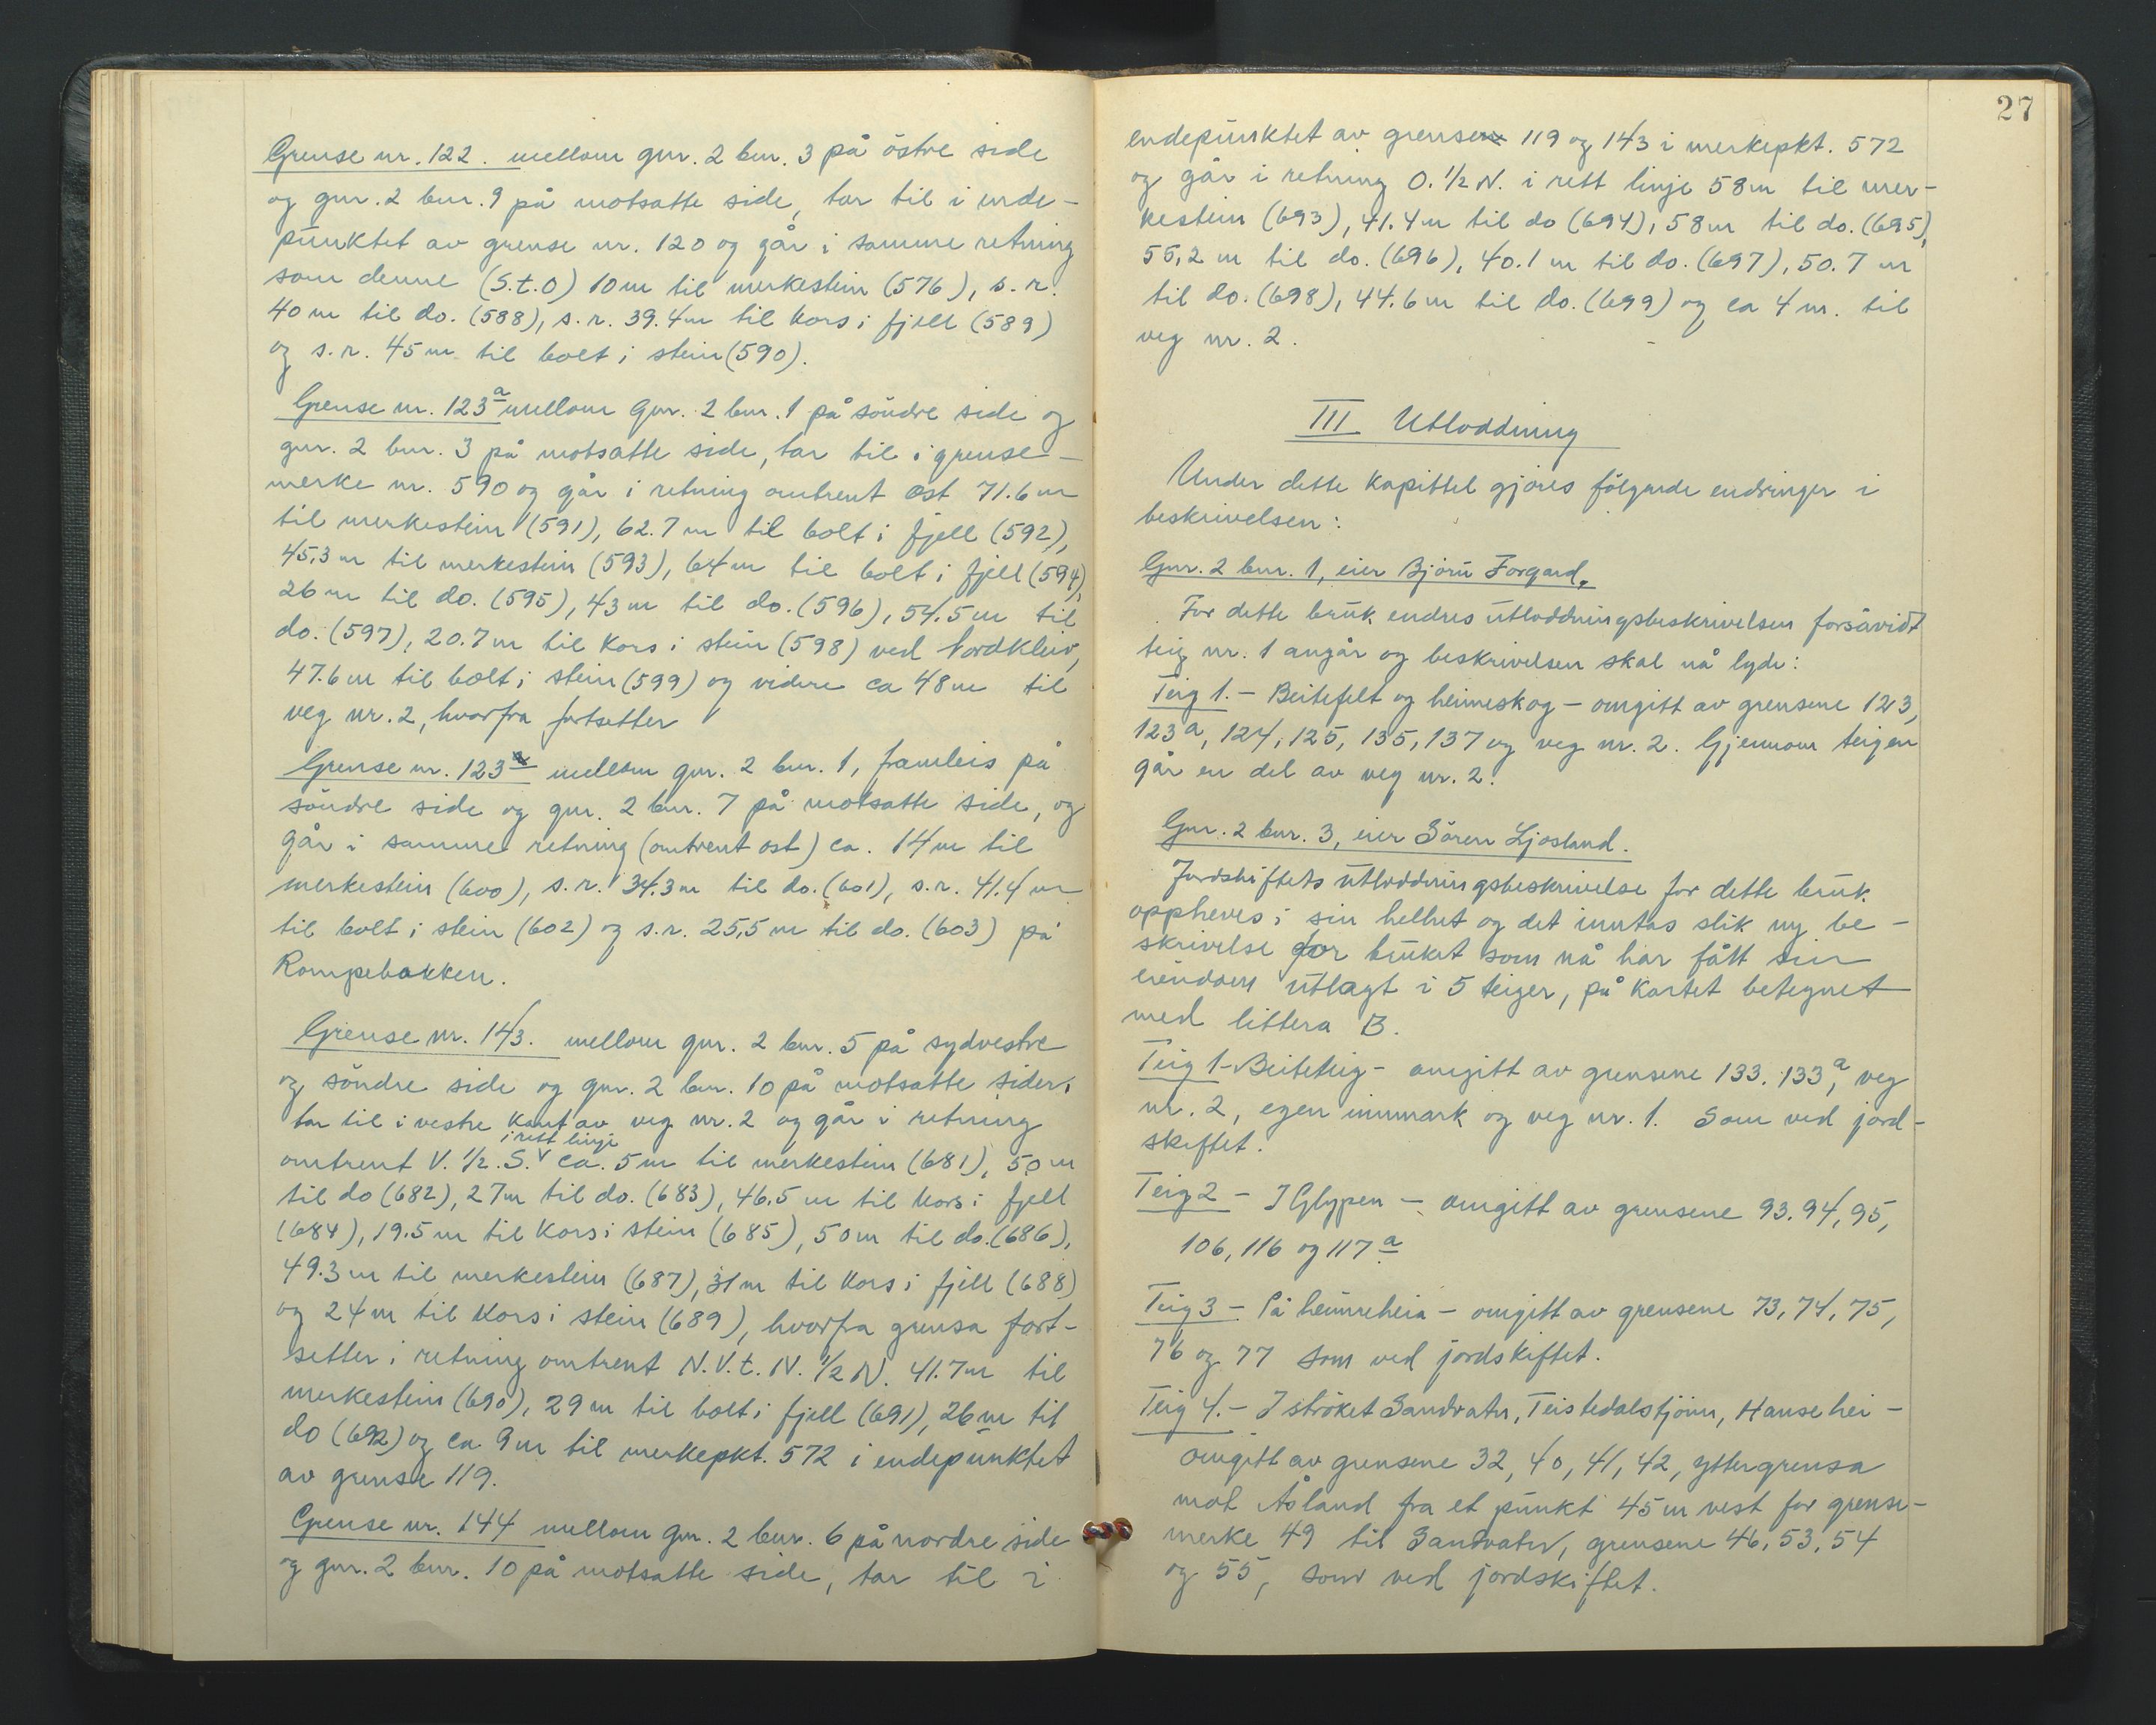 Grense nr. 122. mellom gnr. 2 bnr. 3 på östre side
og gnr. 2 bnr. 9 på motsatte side, tar til i ende-
punktet av grense nr. 120 og går i samme retning
som denne (S.t.O) 10m til merkestein (576), s.r.
40m til do. (588), s.r. 39.4m til kors i fjell (589)
og s.r. 45m til bolt i stein (590).
Grense nr. 123a mellom gnr. 2 bnr. 1 på söndre side og
gnr. 2 bnr. 3 på motsatte side, tar til i grense-
merke nr. 590 og går i retning omtrent ost 71.6m
til merkestein (591), 62.7m til bolt i fjell (592),
45,3m til merkestein (593), 64m til bolt i fjell (594),
26m til do. (595), 43m til do. (596), 54.5m til
do. (597), 20.7m til kors i stein (598) ved Nordkleiv,
47.6m til bolt i stein (599) og videre ca 48m til
veg nr. 2, hvorfra fortsetter
Grense nr. 123 mellom gnr. 2 bnr. 1, framleis på
söndre side og gnr. 2 bnr. 7 på motsatte side, og
går i samme retning (omtrent ost) ca. 14m til
merkestein (600), s.r. 34.3m til do. (601), s.r. 41.4m
til bolt i stein (602) og s.r. 25,5m til do. (603) på
Rompebakken.
Grense nr. 143. mellom gnr. 2 bnr. 5 på sydvestre
og söndre side og gnr. 2 bnr. 10 på motsatte sider,
tar til i vestre kant av veg nr. 2 og går i retning
i rett linje
omtrent V. 1/2 S. ca. 5m til merkestein (681), 50m
til do (682), 27m til do. (683), 46.5m til kors i fjell
(684), 19.5m til kors i stein (685), 50m til do. (686),
49.3m til merkestein (687), 31m til kors i fjell (688)
og 24m til kors i stein (689), hvorfra grensa fort-
setter i retning omtrent N.V.t.N. 1/2 N. 41.7m til
merkestein (690), 29m til bolt i fjell (691), 26m til
do (692) og ca 9m til merkepkt. 572 i endepunktet
av grense 119.
Grense nr. 144 mellom gnr. 2 bnr. 6 på nordre side
og gnr. 2 bnr. 10 på motsatte side, tar til i
27
endepunktet av grense 119 og 143 i merkepkt. 572
og går i retning O. 1/2 N. i rett linje 58m til mer-
kestein (693), 41.4m til do (694), 58m til do. (695),
55,2m til do. (696), 40.1m til do. (697), 50.7m
til do. (698), 44.6m til do. (699) og ca 4m. til
veg nr. 2.
III Utloddning
Under dette kapittel gjöres fölgende endringer i
beskrivelsen:
Gnr. 2 bnr. 1, eier Björn Forgard.
For dette bruk endres utloddningsbeskrivelsen forsåvidt
teig nr. 1 angår og beskrivelsen skal nå lyde:
Teig 1. - Beitefelt og heimeskog - omgitt av grensene 123,
123a, 124, 125, 135, 137 og veg nr. 2. Gjennom teigen
går en del av veg nr. 2.
Gnr. 2 bnr. 3, eier Sören Ljosland.
Jordskiftets utloddningsbeskrivelse for dette bruk
oppheves i sin helhet og det inntas slik ny be-
skrivelse for bruket som nå har fått sin
eiendom utlagt i 5 teiger, på kartet betegnet
med littera B.
Teig 1 - Beiteteig - omgitt av grensene 133. 133a, veg
nr. 2, egen innmark og veg nr. 1. Som ved jord-
skiftet.
Teig 2 - I Glypen - omgitt av grensene 93. 94, 95,
106, 116 og 117a
Teig 3 - På heimreheia - omgitt av grensene 73, 74, 75,
76 og 77 som ved jordskiftet.
Teig 4. - I ströket Sandvatn, Teistedalstjönn, Hansehei -
omgitt av grensene 32, 40, 41, 42, yttergrensa
mot Åsland fra et punkt 45m vest for grense-
merke 49 til Sandvatn, grensene 46, 53, 54
og 55, som ved jordskiftet.